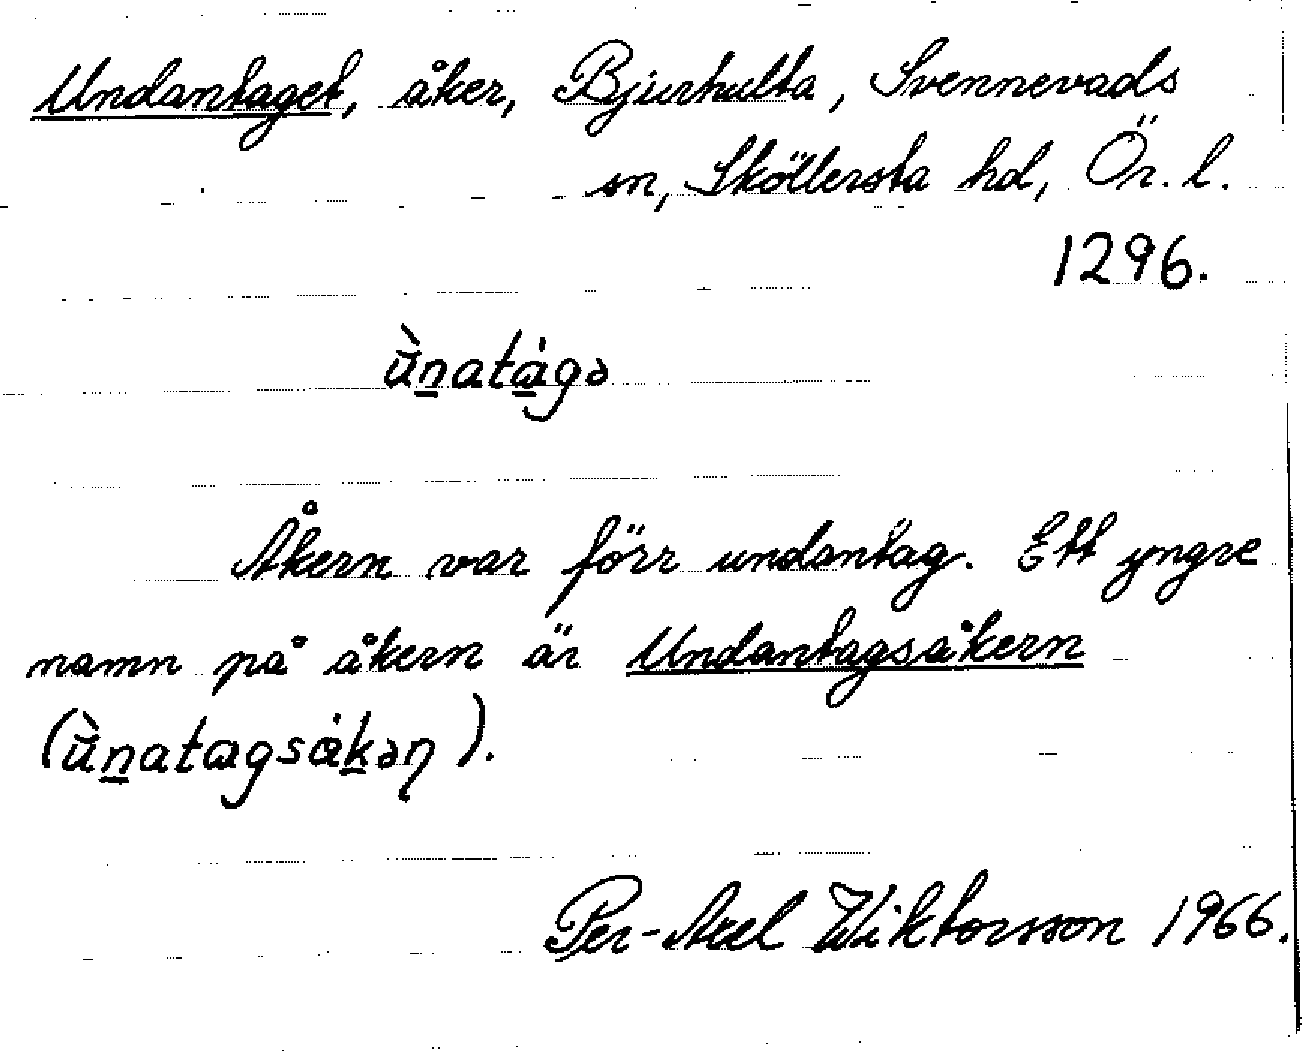 Undantaget, åker, Bjurhulta, Svennevads
sn, Sköllersta hd, Ör. l.
1296.
ùn̲ata̲̍gə
Åkern var förr undantag. Ett yngre
namn på åkern är Undantagsåkern
(ùn̲atagså̍k̲əƞ).
Per-Axel Wiktorsson 1966.